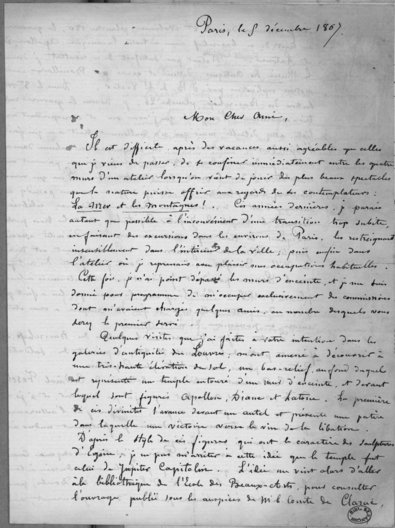 Paris, le 5 décembre 1867.
Mon Cher Ami,
Il est difficile après des vacances aussi agréables que celles
que je viens de passer, de se confiner immédiatement entre les quatre
murs d'un atelier lorsqu'on vient de jouir des plus beaux spectacles
que la nature puisse offrir aux regards de ses contemplateurs :
La Mer et les Montagnes ! . Ces années dernières, je parais
autant que possible à l'inconvénient d'une transition trop subite,
en faisant des excursions dans les environs de Paris, les restreignant
insensiblement dans l'intérieur de la ville, puis enfin dans
l'atelier où je reprenais avec plaisir mes occupations habituelles.
Cette fois, je n'ai point dépassé les murs d'enceinte, et je me suis
donné pour programme de m'occuper exclusivement des commissions
dont m'avaient chargé quelques amis, au nombre desquels vous
serez le premier servi.
Quelques visites que j'ai faites à votre intention dans les
galeries d'antiquité du Louvre, m'ont amené à découvrir à
une très-haute élévation du sol, un bas-relief, au fond duquel
est représenté un temple entouré d'un mur d'enceinte, et devant
lequel sont figurés Apollon, Diane et Latone. La première
de ces divinités s'avance devant un autel et présente une patère
dans laquelle une victoire verse le vin de la libation.
D'après le style de ces figures qui ont le caractère des sculptures
d'Égine, je ne puis m'arrêter à cette idée que le temple fut
celui de Jupiter Capitolin. L'idée me vint alors d'aller
à la bibliothèque de l'École des Beaux-Arts, pour consulter
l'ouvrage publié sous les auspices de Mr le Comte de Clarac,